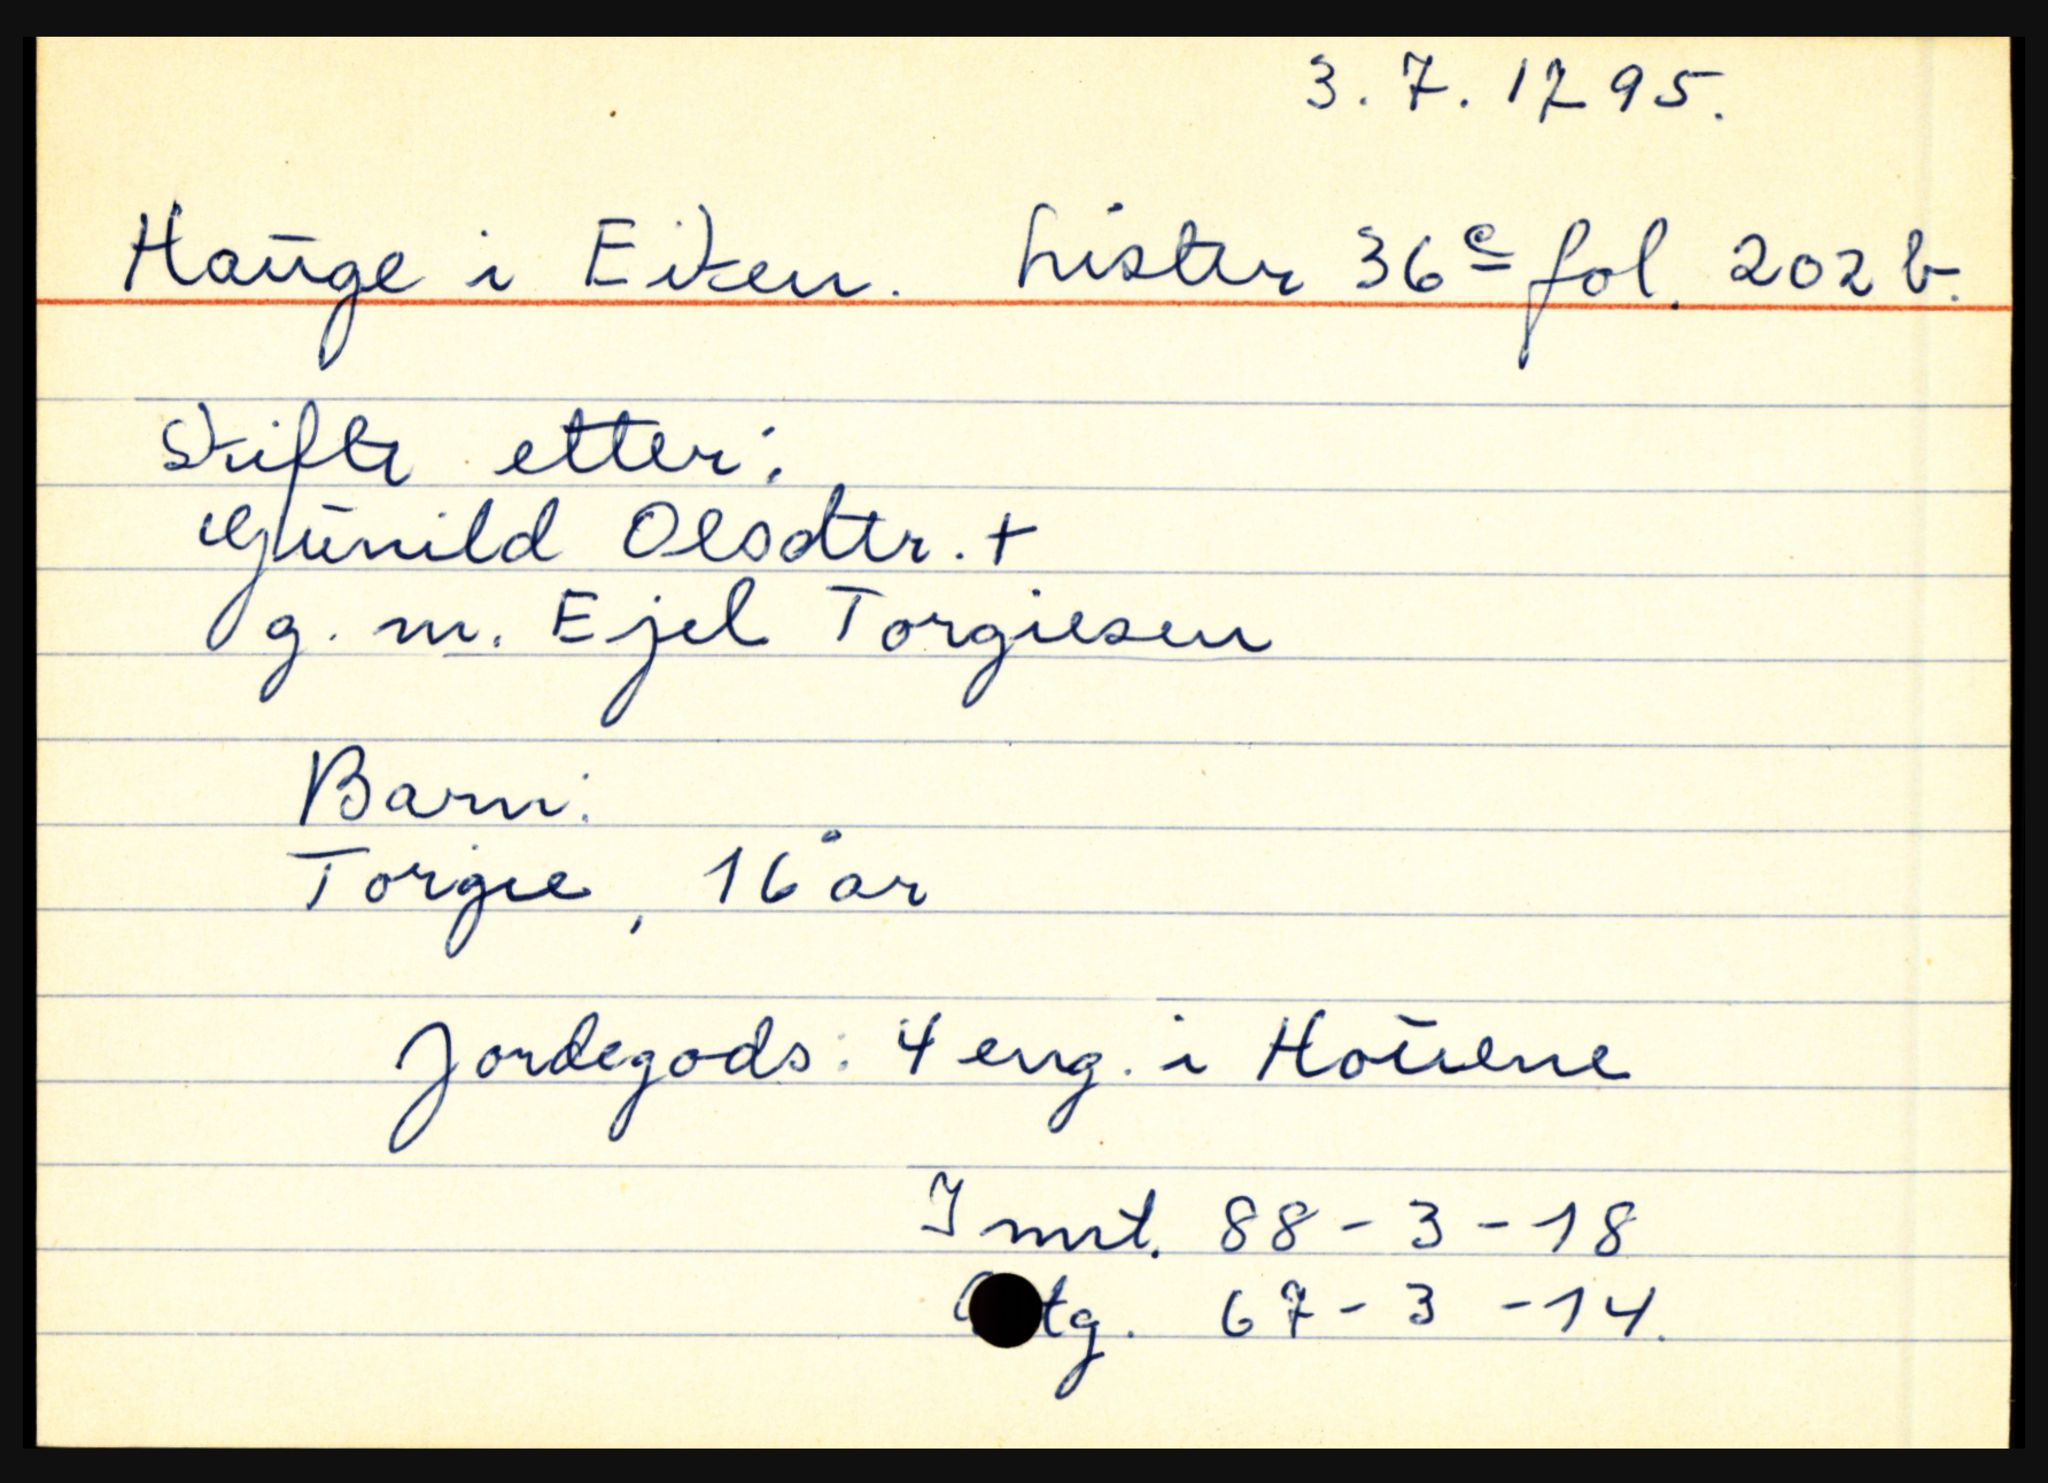 3.7.1795.
Hauge i Eiken. Lister 36c fol. 202 b.
Skifte etter:
Gunild Olsdtr. +
g. m. Ejel Torgiesen
Barn:
Torgie, 16 år
Jordegods: 4 eng. i Houene
Innt. 88 - 3 - 18
67 - 3 - 14.